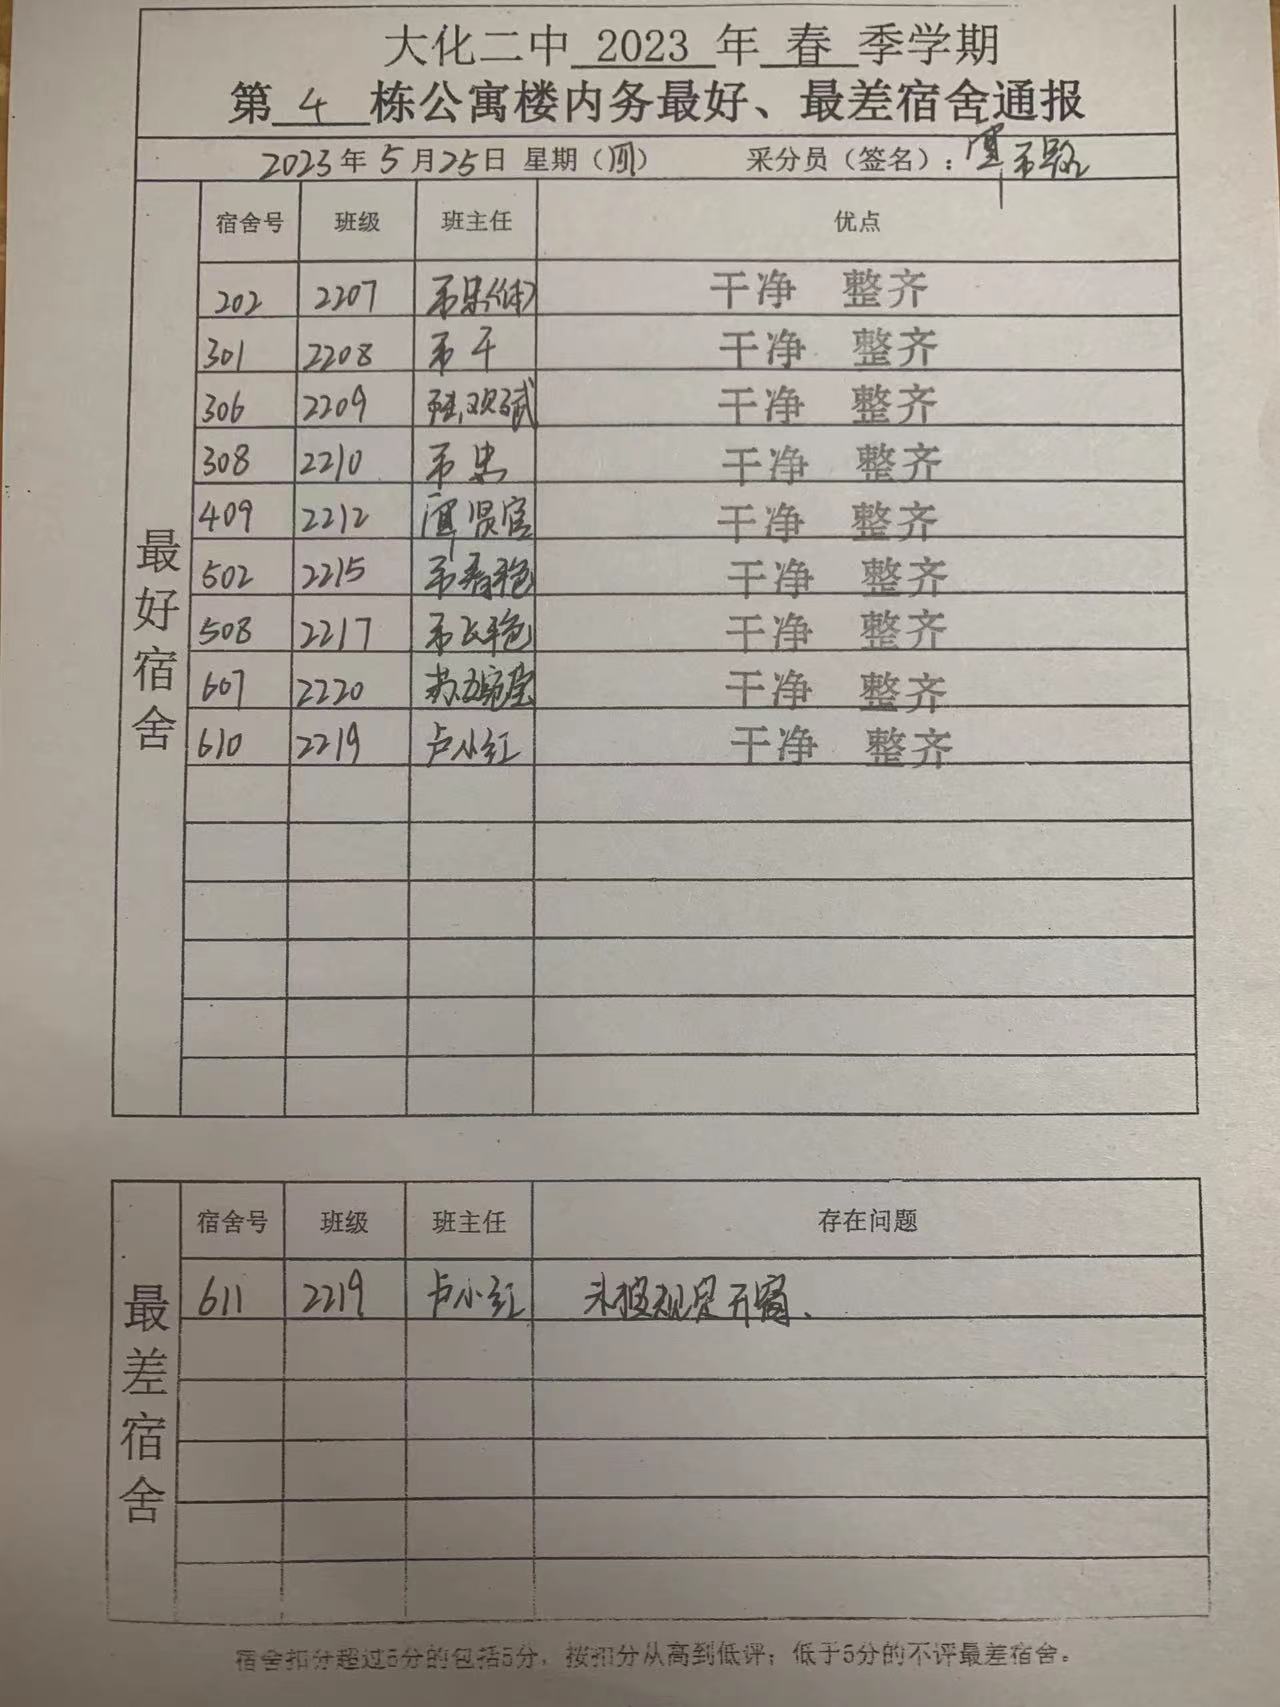 大化二中 2023 年 春 季学期
第 4 栋公寓楼内务最好、最差宿舍通报
2023年5月25日 星期(四) 采分员(签名):覃
最好宿舍
宿舍号 班级 班主任 优点
202 2207 干净 整齐
301 2208 干净 整齐
306 2209 干净 整齐
308 2210 干净 整齐
409 2212 覃贤官 干净 整齐
502 2215 干净 整齐
508 2217 干净 整齐
607 2220 干净 整齐
610 2219 卢小红 干净 整齐
最差宿舍
宿舍号 班级 班主任 存在问题
611 2219 卢小红 未按规定开窗、
宿舍扣分超过5分的包括5分,按扣分从高到低评;低于5分的不评最差宿舍。